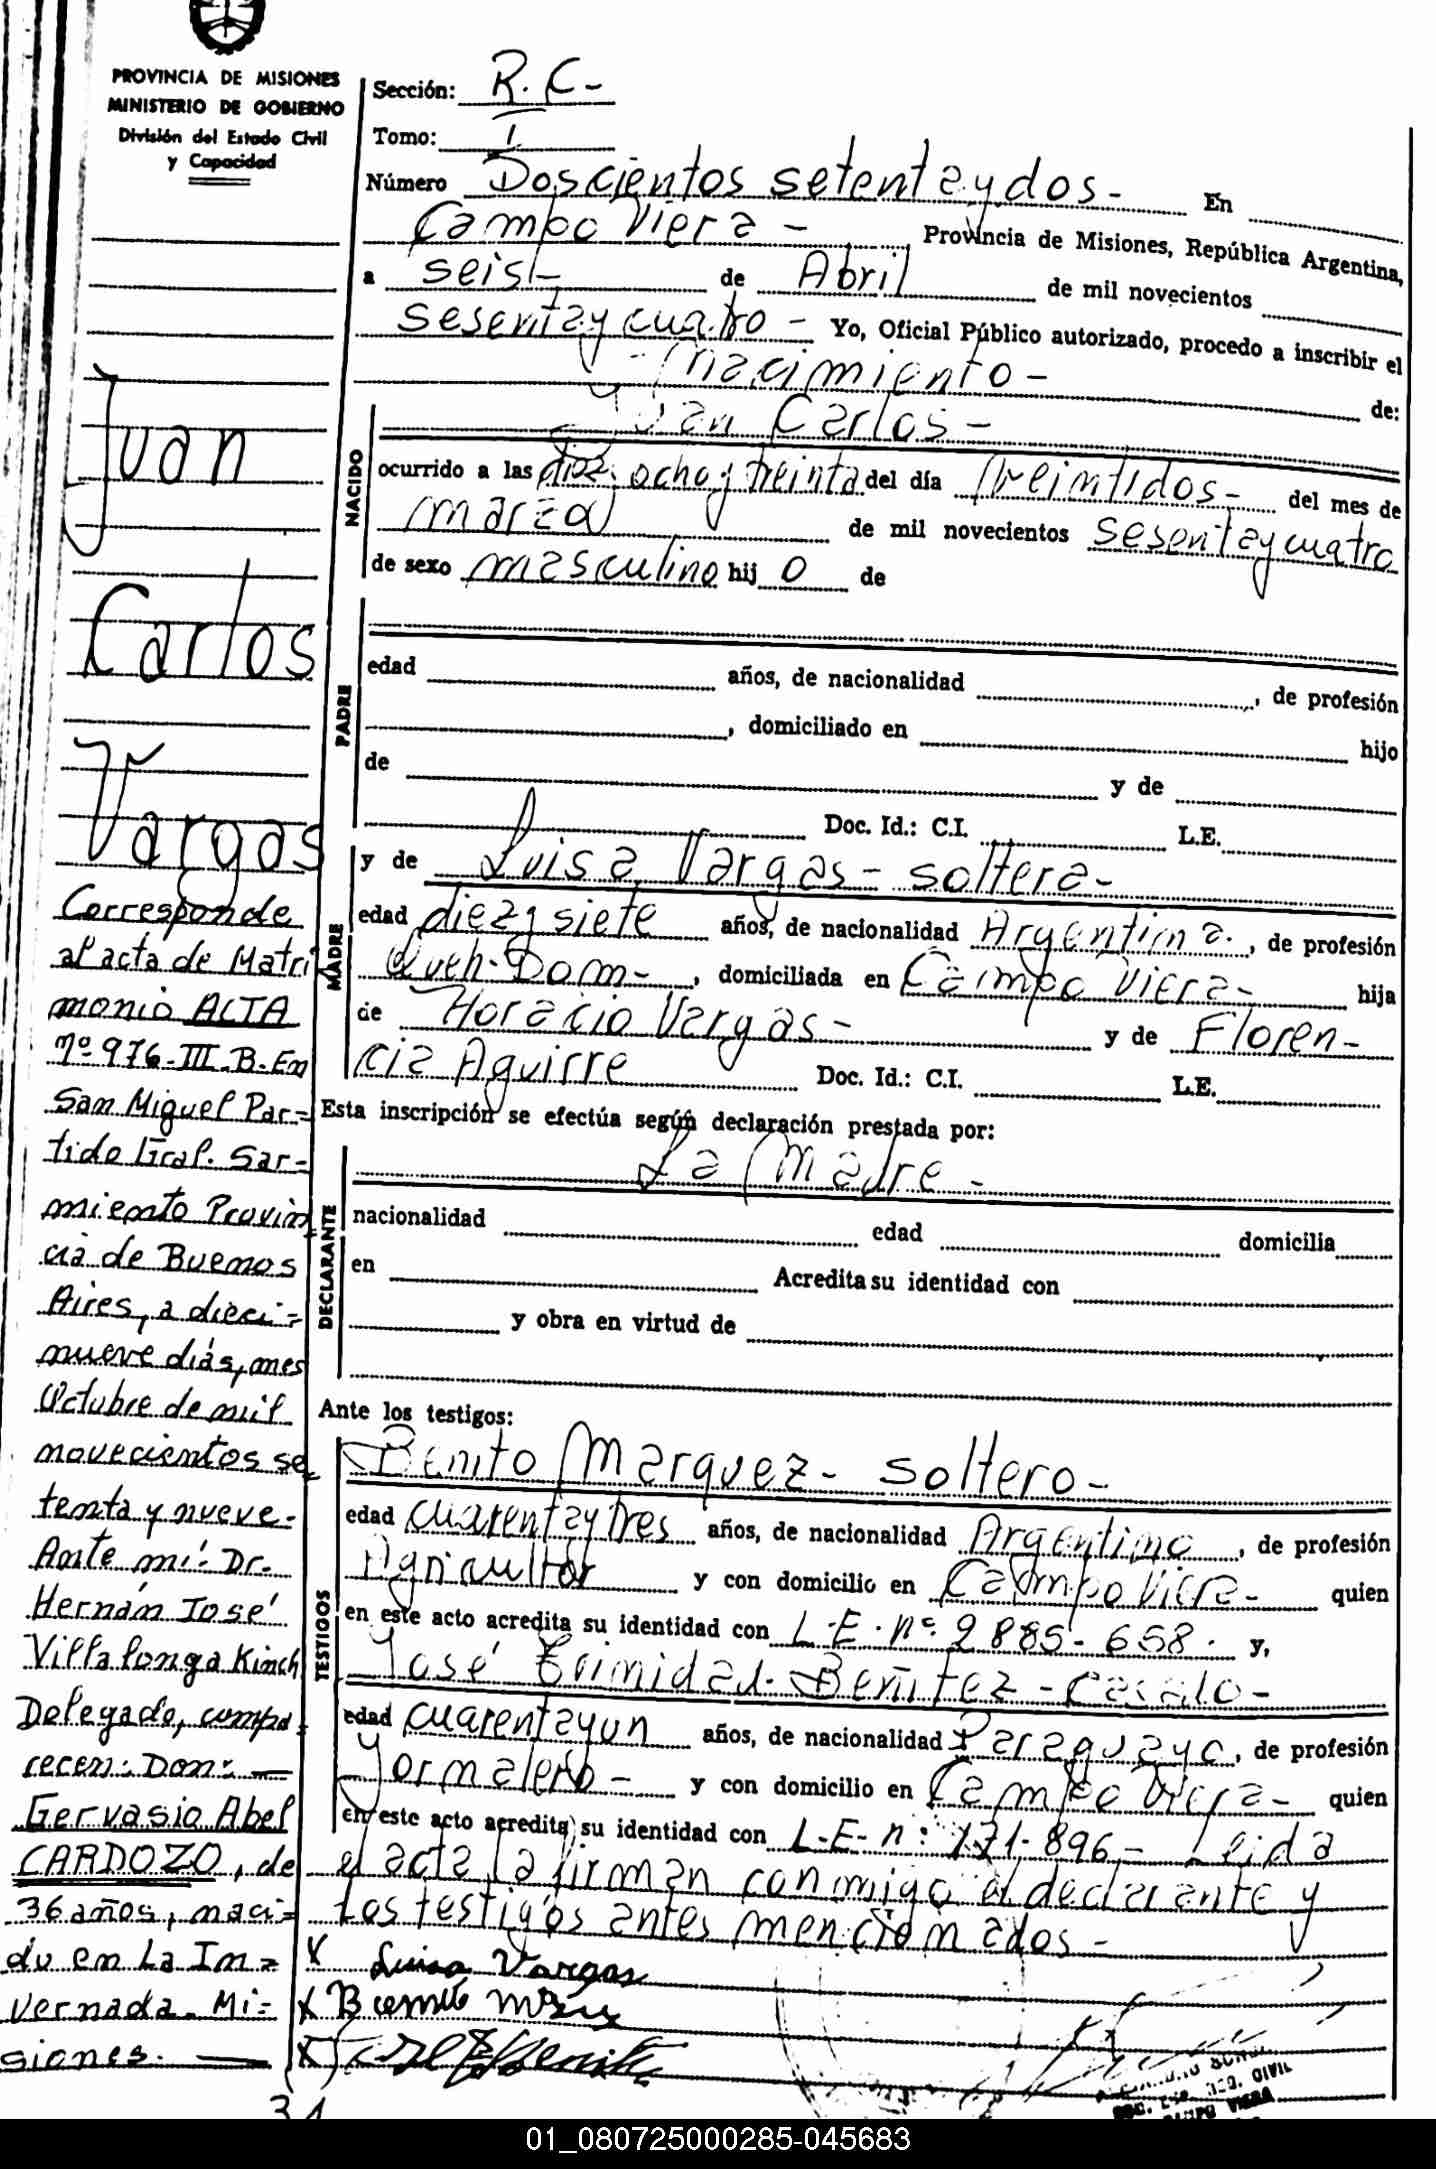 PROVINCIA DE MISIONES
MINISTERIO DE GOBIERNO
División del Estado Civil
y Capacidad
Juan
Carlos
Vargas
Corresponde
al acta de Matri
monio ACTA
Nº 976-III-B-En
San Miguel Par=
tido Gral. Sar=
miento Provin=
cia de Buenos
Aires, a dieci=
nueve días, mes
Octubre de mil
novecientos se
tenta y nueve-
Ante mi: Dr.
Hernán José
Villalonga Kinch
Delegado, compa=
recen: Don: —
Gervasio Abel
CARDOZO, de
36 años, naci=
do en La In=
vernada. Mi=
siones. —
Sección: R.C-
Tomo: I
Número Doscientos setentaydos- En
Campo Viera - Provincia de Misiones, República Argentina,
a seis- de Abril de mil novecientos
sesentaycuatro - Yo, Oficial Público autorizado, procedo a inscribir el
- nacimiento - de:
Juan Carlos -
NACIDO
ocurrido a las diez ocho y treinta del día treintidos- del mes de
marzo de mil novecientos sesentaycuatro
de sexo masculino hij o de
PADRE
edad años, de nacionalidad , de profesión
, domiciliado en hijo
de y de
Doc. Id.: C.I. L.E.
MADRE
y de Luisa Vargas- soltera-
edad diezysiete años, de nacionalidad Argentina-, de profesión
Queh-Dom-, domiciliada en Campo Viera- hija
de Horacio Vargas- y de Floren-
cia Aguirre Doc. Id.: C.I. L.E.
Esta inscripción se efectúa según declaración prestada por:
La Madre -
DECLARANTE
nacionalidad edad domicilia
en Acredita su identidad con
y obra en virtud de
Ante los testigos:
TESTIGOS
Benito Marquez- soltero-
edad cuarentaytres años, de nacionalidad Argentino, de profesión
Agricultor y con domicilio en Campo Viera- quien
en este acto acredita su identidad con L.E.nº 2885-658. y,
José Trinidad Benitez - Casado-
edad cuarentayun años, de nacionalidad Paraguayo, de profesión
Jornalero- y con domicilio en Campo Viera- quien
en este acto acredita su identidad con L-E-n: 171-896,- Leida
el acta la firman conmigo el declarante y
los testigos antes mencionados-
X Luisa Vargas
X Benito
X
REG. CIVIL
CAMPO VIERA
01_080725000285-045683